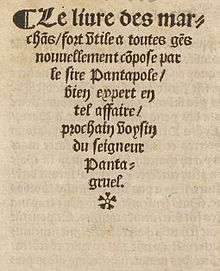 ¶ Le liure des mar-
chãs/ fort vtile a toutes gẽs
nouuellement cõpose par
le sire Pantapole/
bien expert en
tel affaire/
prochain voysin
du seigneur
Panta-
gruel.